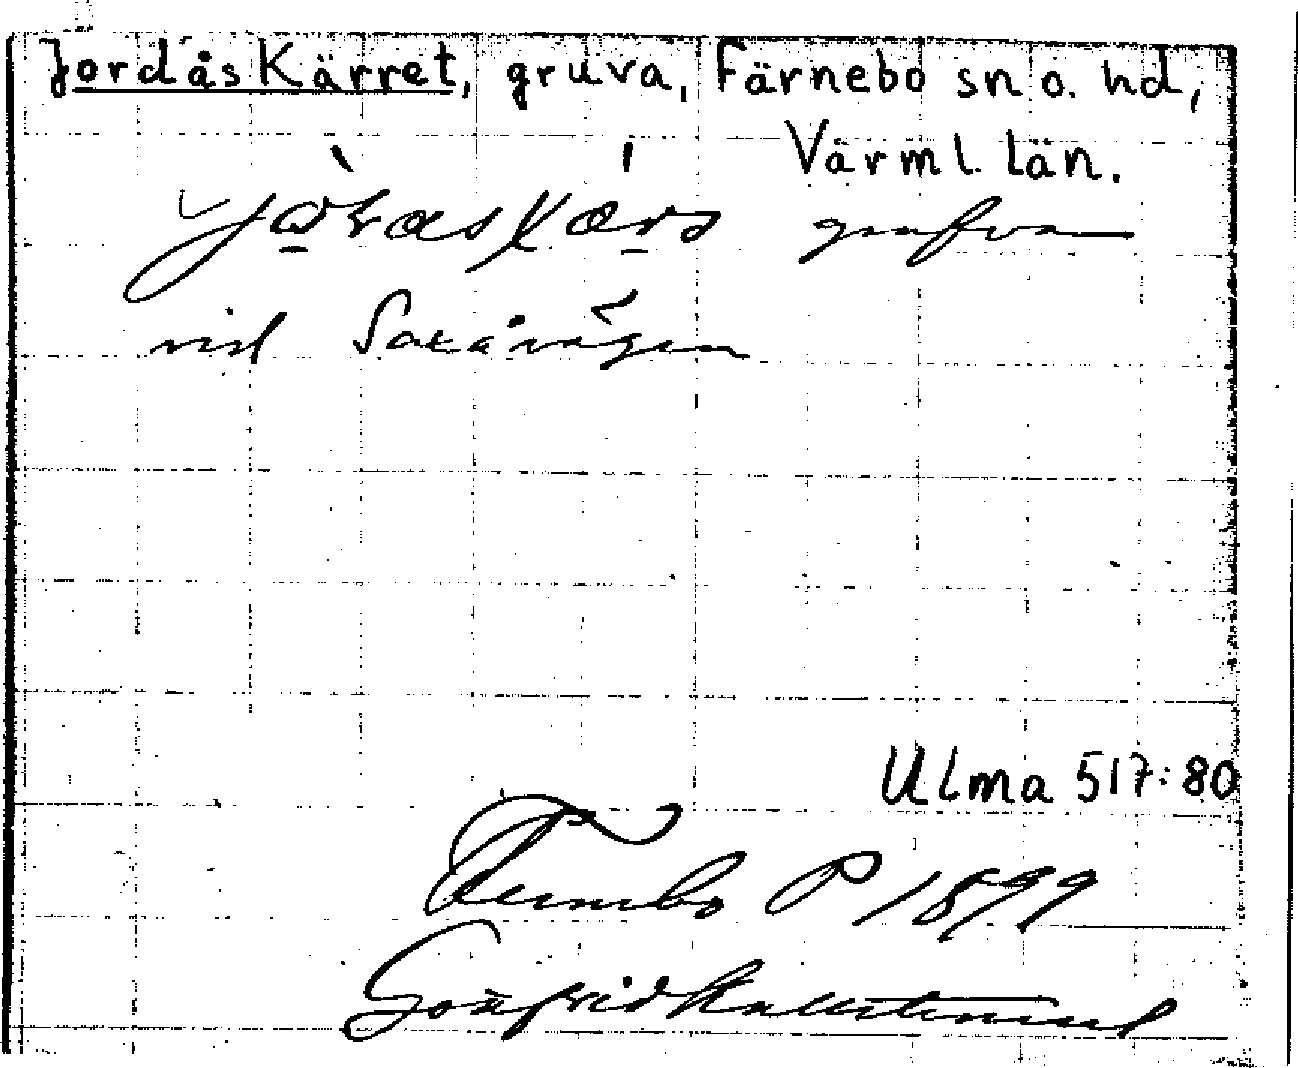 Jordåskärret, gruva, Färnebo sn o. hd,
Värml. län.
grufvan
vid Saxåvägen
Ulma 517:80
Fernebo P 1899
Gottfrid Kallstenius